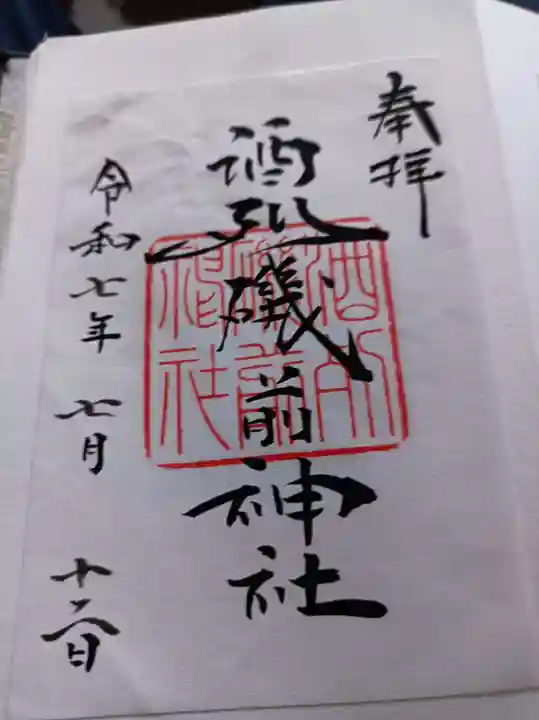 奉拝
酒列磯前神社
令和七年 七月 十六日
酒列
磯前
神社